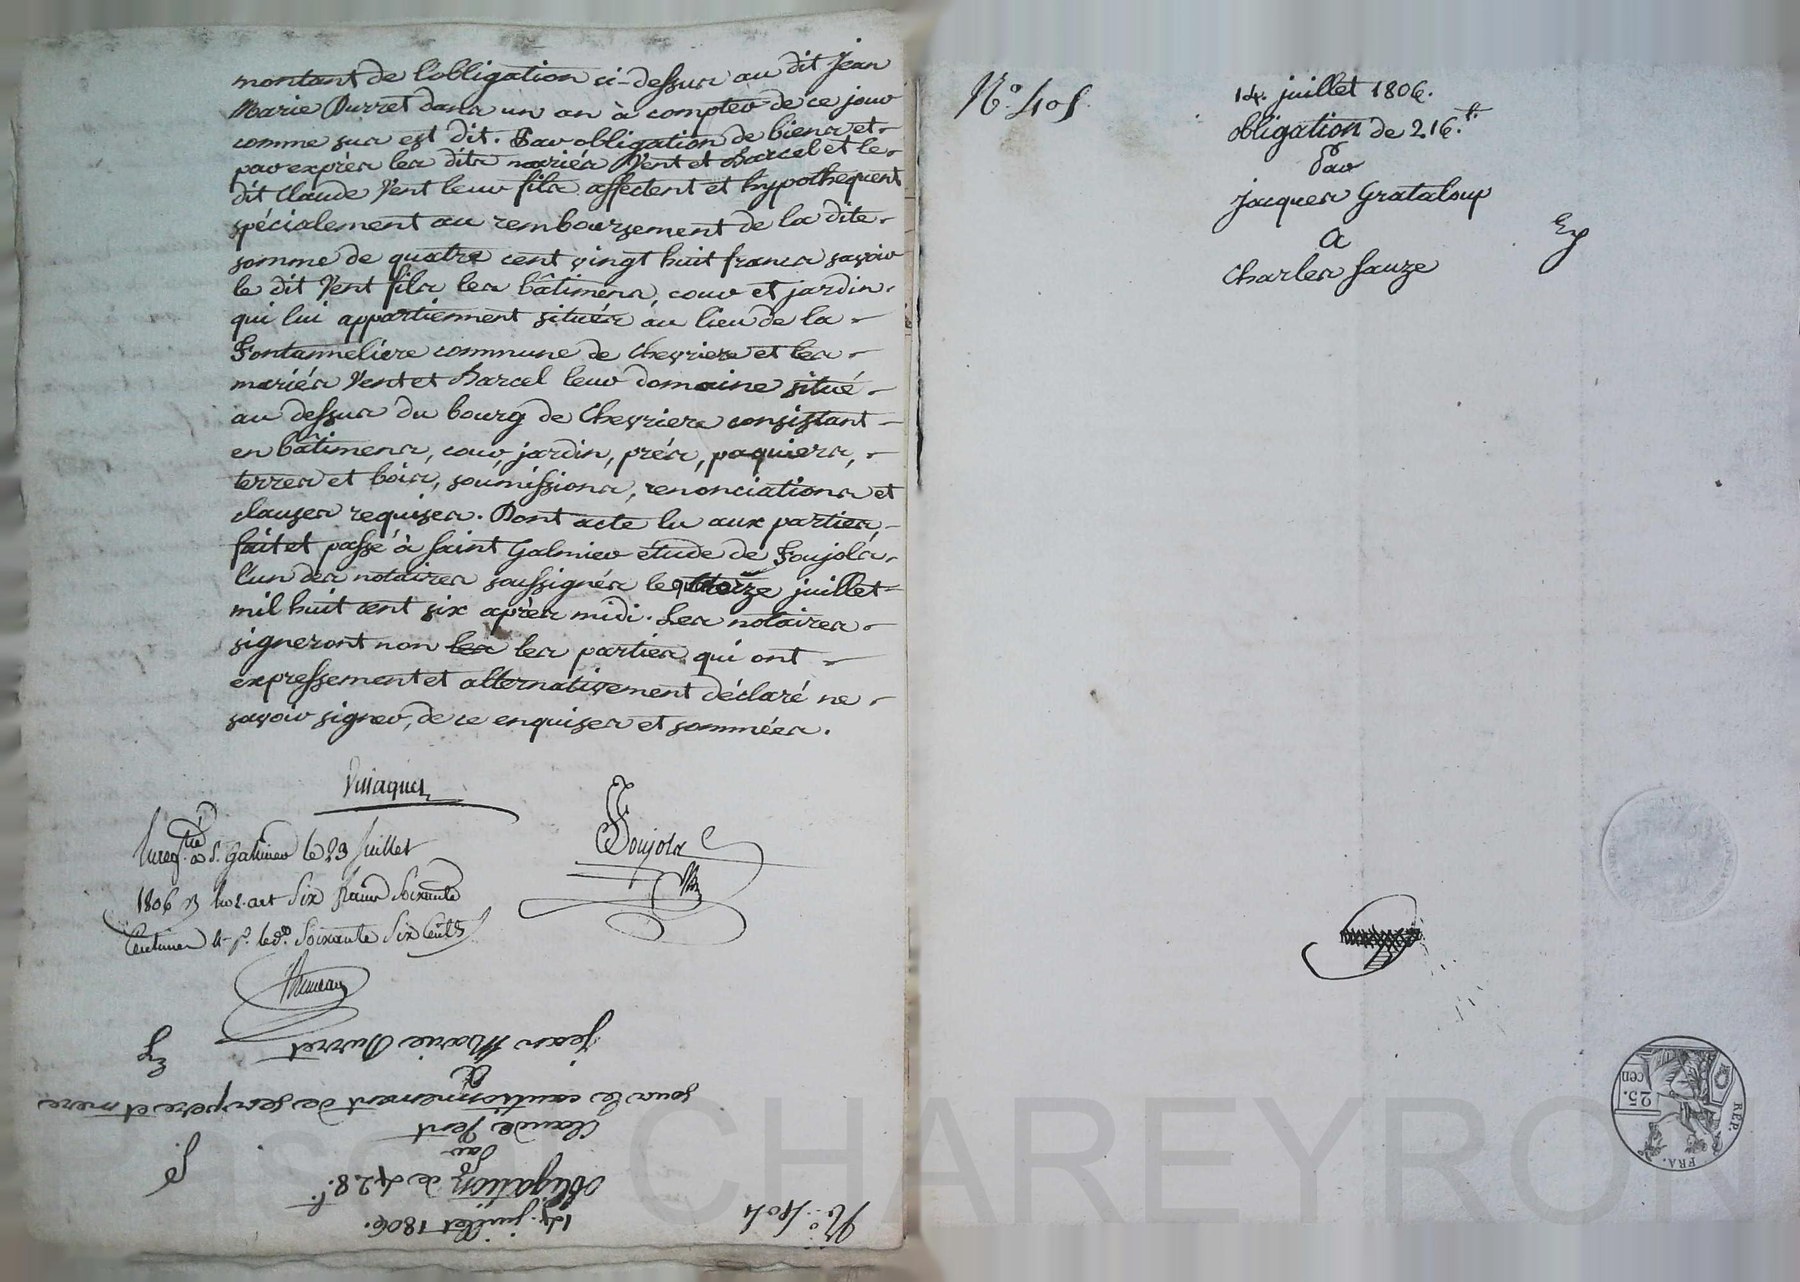 montant de l'obligation ci-dessus au dit Jean
Marie Durret dans un an à compter de ce jour
comme sus est dit. Par obligation de biens et
par exprès les dits mariés Vent et Barcel et le
dit Claude Vent leur fils affectent et hypothequent
spécialement au remboursement de la dite
somme de quatre cent vingt huit francs savoir
le dit Vent fils les bâtimens, cour et jardin
qui lui appartiennent situés au lieu de la
Fontanneliere commune de Chevriere et les
mariés Vent et Barcel leur domaine situé
au dessus du bourg de Chevriere consistant
en bâtimens, cour, jardin, prés, paquiers,
terres et bois, soumissions, renonciations et
clauses requises. Dont acte lu aux parties
fait et passé à Saint Galmier étude de Foujols
l'un des notaires soussignés le quatorze juillet
mil huit cent six après midi. Les notaires
signeront non les les parties qui ont
expressement et alternativement déclaré ne
savoir signer, de ce enquises et sommées.
Foujols
à St. Galmier le 23 Juillet
1806 Six francs Soixante
Centimes Soixante Six Cents
N.º 404
14. juillet 1806.
obligation de 428.f.
Par
Claude Vent
sous le cautionnement de ses pere et mere
à
Jean Marie Durret
N.º 405
14. juillet 1806.
obligation de 216.f.
Par
Jacques Grataloup
a
Charles Sauze
REP. FRA.
25. CEN
Pascal CHAREYRON